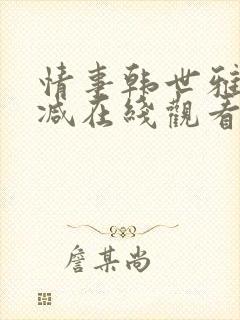 情事韩世雅
减在綫觀看
詹某尚